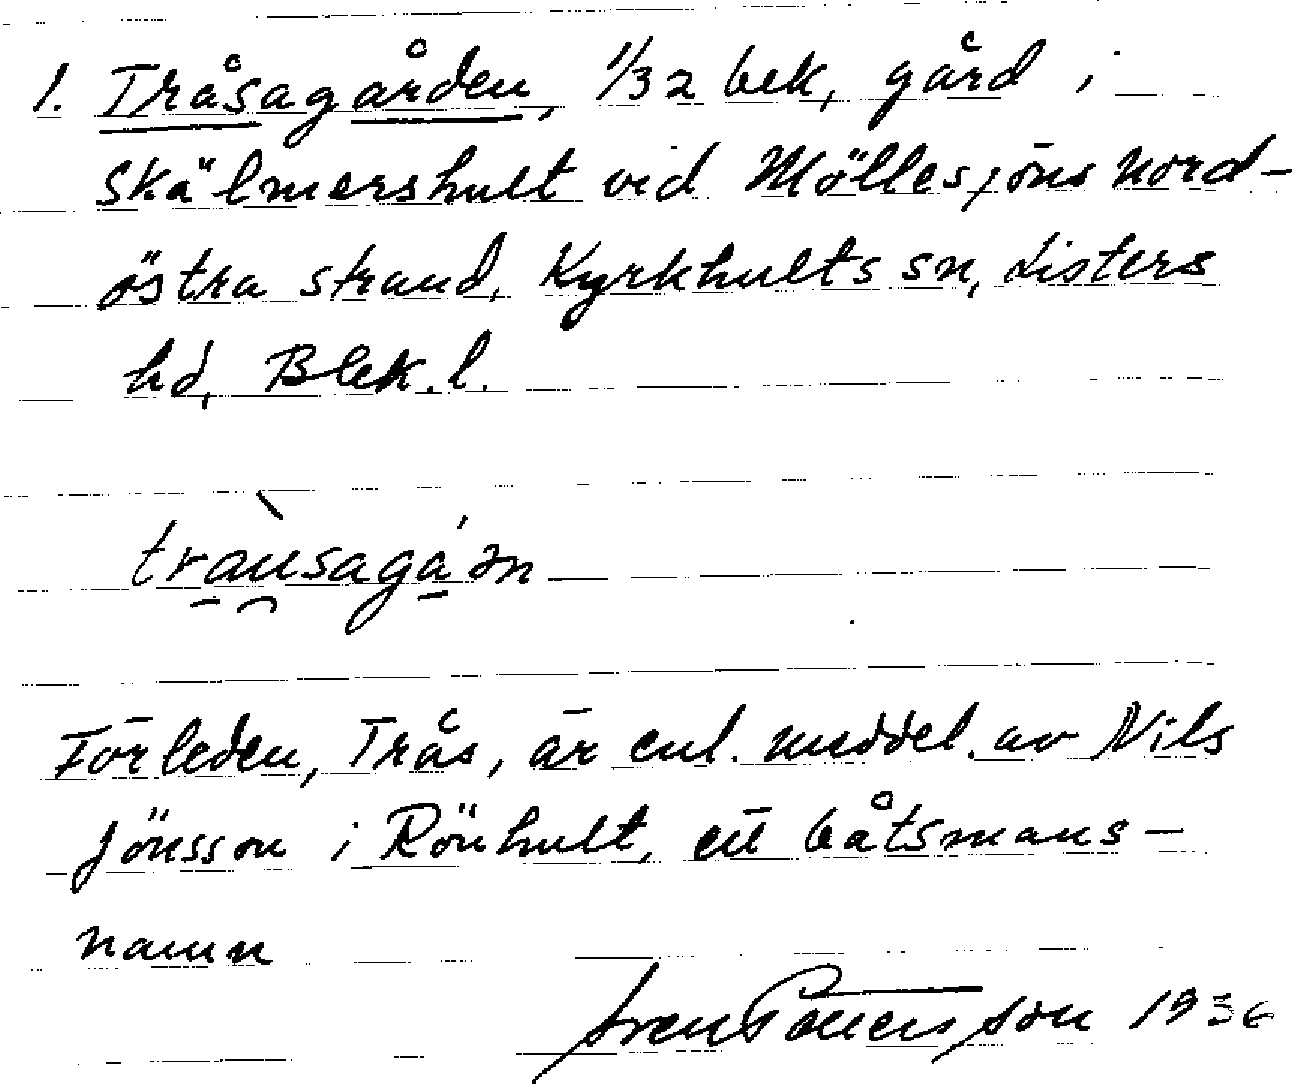 1. Tråsagården, 1/32 bek, gård i
Skälmershult vid Möllesjöns nord-
östra strand, Kyrkhults sn, Listers
hd, Blek. l.
tràusagán
Förleden, Trås, är enl. meddel. av Nils
Jönsson i Rönhult, ett båtsmans-
namn
Sven Pettersson 1936